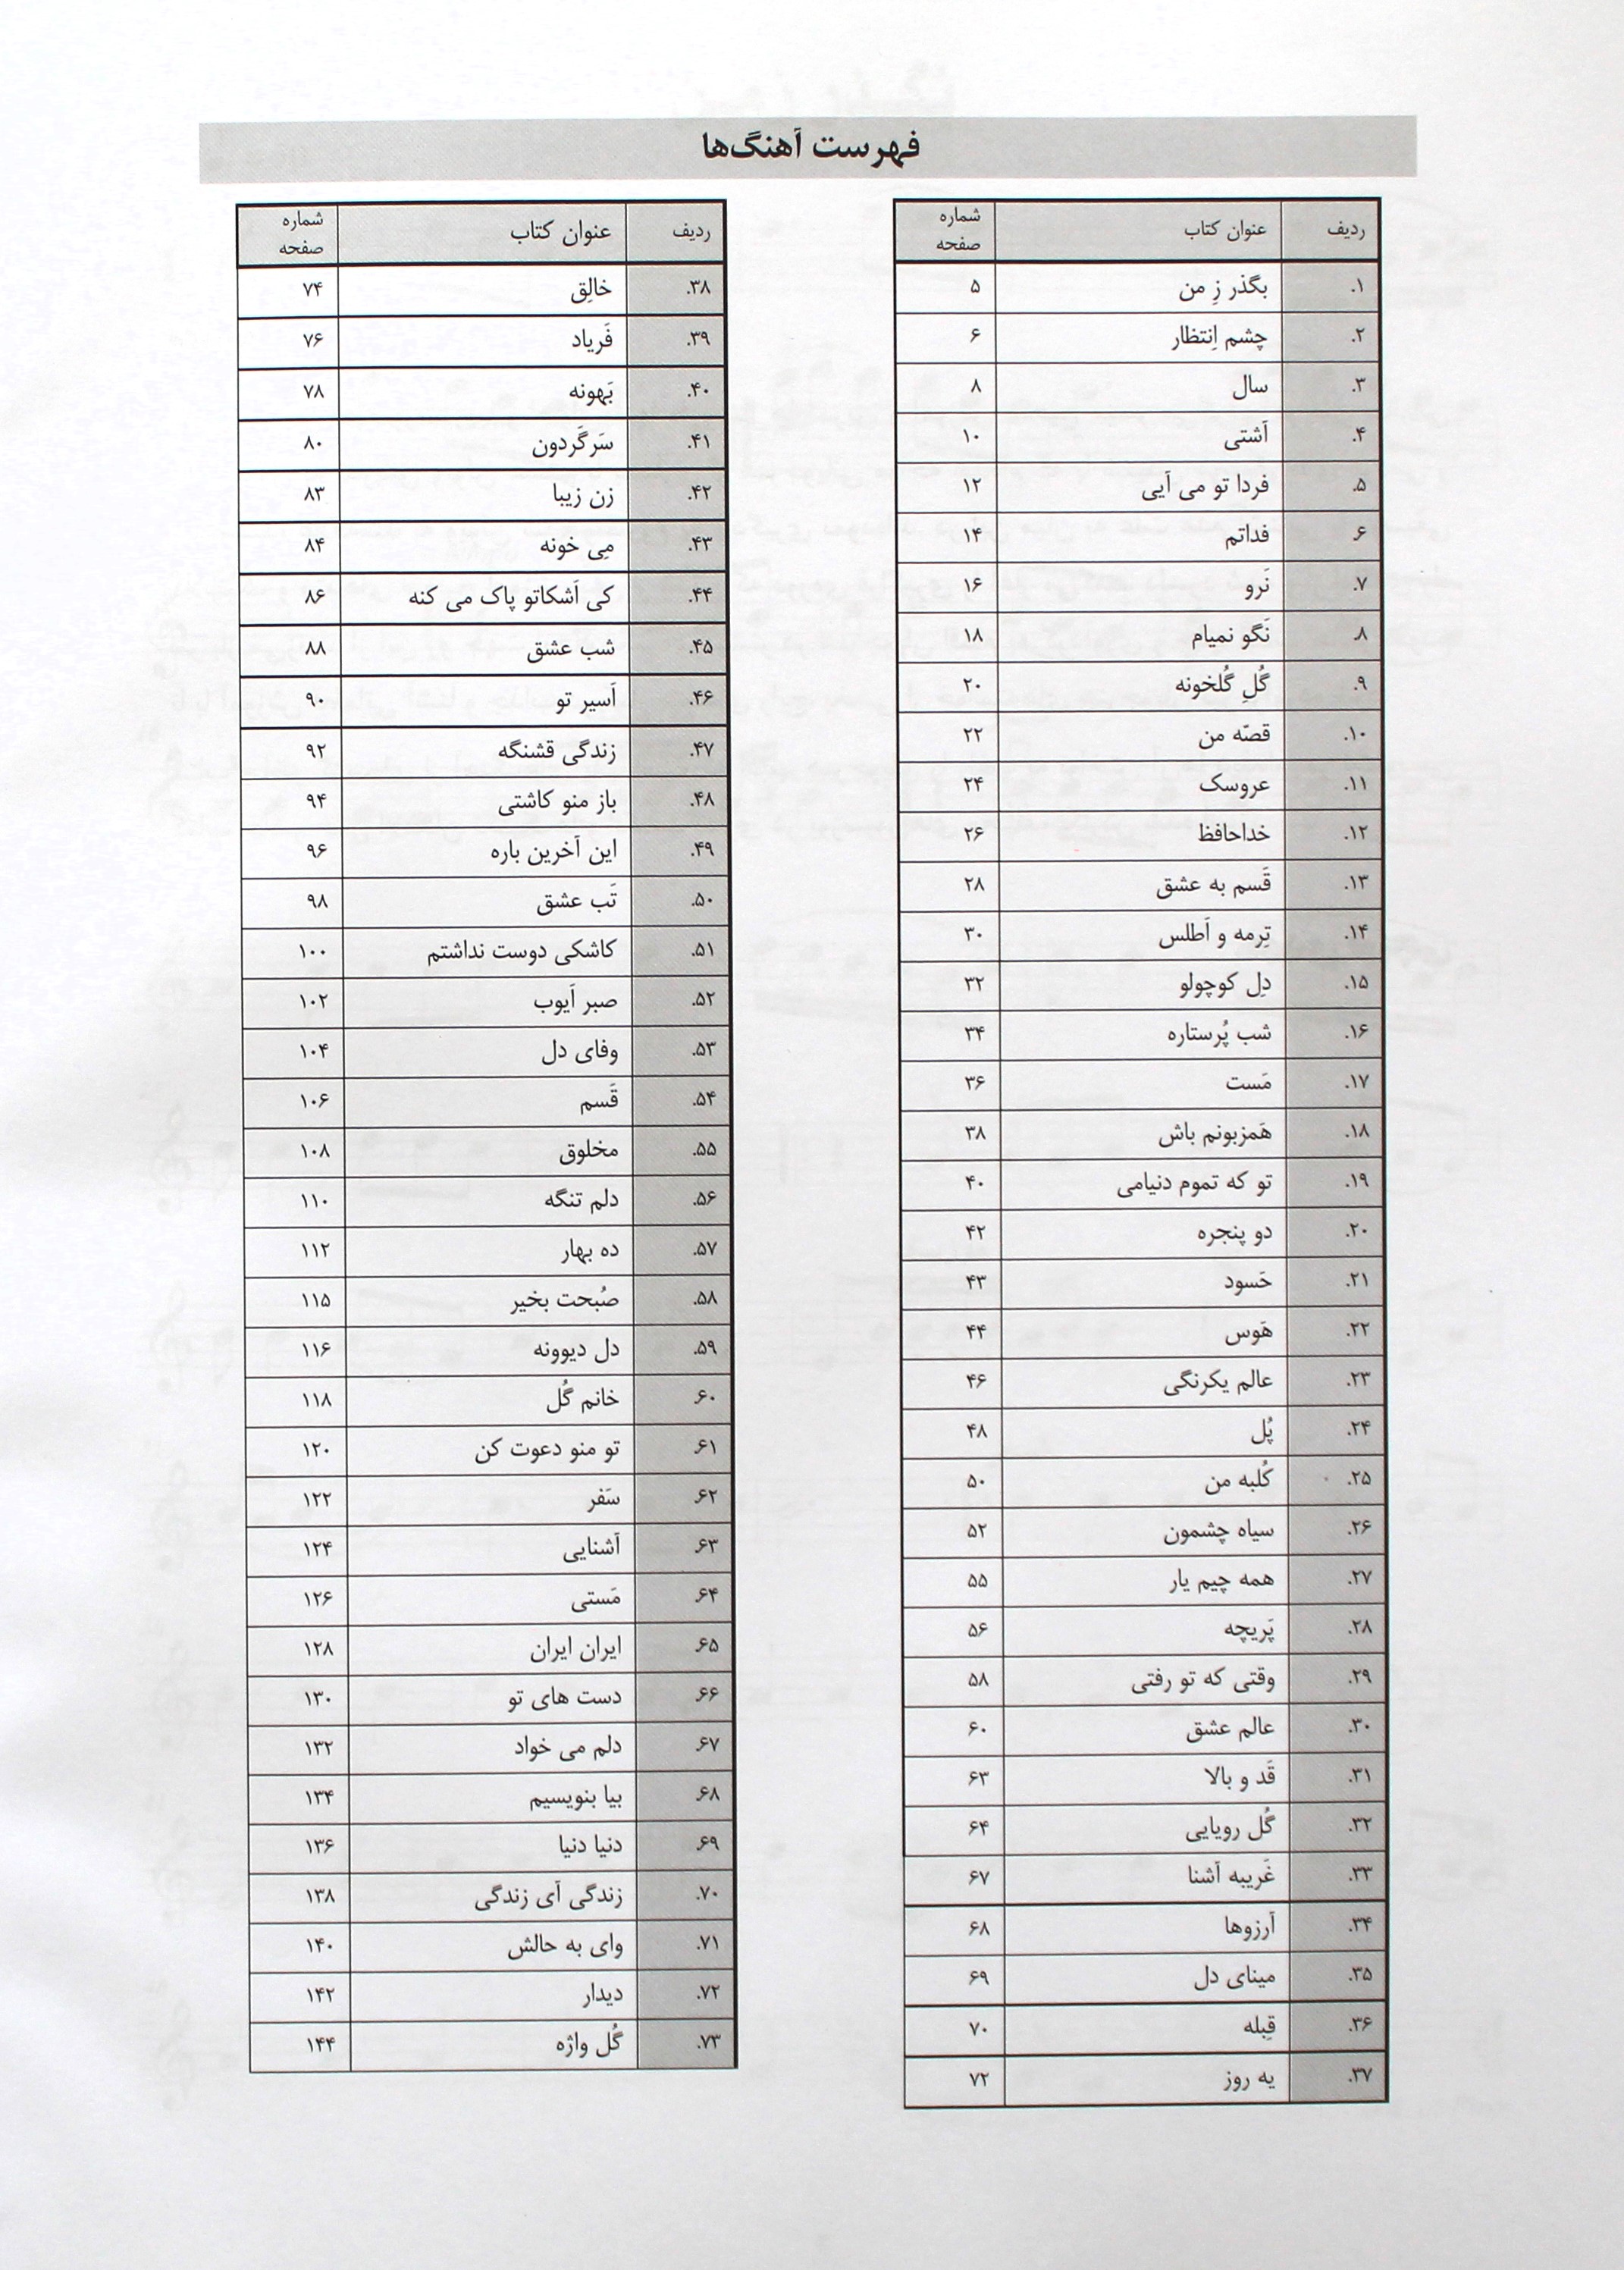 فهرست آهنگ‌ها
ردیف عنوان کتاب شماره صفحه
۱. بگذر زِ من ۵
۲. چشم اِنتظار ۶
۳. سال ۸
۴. آشتی ۱۰
۵. فردا تو می آیی ۱۲
۶. فداتم ۱۴
۷. نَرو ۱۶
۸. نَگو نمیام ۱۸
۹. گُلِ گُلخونه ۲۰
۱۰. قصّه من ۲۲
۱۱. عروسک ۲۴
۱۲. خداحافظ ۲۶
۱۳. قَسم به عشق ۲۸
۱۴. تِرمه و اَطلس ۳۰
۱۵. دِل کوچولو ۳۲
۱۶. شب پُرستاره ۳۴
۱۷. مَست ۳۶
۱۸. هَمزبونم باش ۳۸
۱۹. تو که تموم دنیامی ۴۰
۲۰. دو پنجره ۴۲
۲۱. حَسود ۴۳
۲۲. هَوس ۴۴
۲۳. عالم یکرنگی ۴۶
۲۴. پُل ۴۸
۲۵. کُلبه من ۵۰
۲۶. سیاه چشمون ۵۲
۲۷. همه چیم یار ۵۵
۲۸. پَریچه ۵۶
۲۹. وقتی که تو رفتی ۵۸
۳۰. عالم عشق ۶۰
۳۱. قَد و بالا ۶۳
۳۲. گُل رویایی ۶۴
۳۳. غَریبه آشنا ۶۷
۳۴. آرزوها ۶۸
۳۵. مینای دل ۶۹
۳۶. قِبله ۷۰
۳۷. یه روز ۷۲
ردیف عنوان کتاب شماره صفحه
۳۸. خالِق ۷۴
۳۹. فَریاد ۷۶
۴۰. بَهونه ۷۸
۴۱. سَرگَردون ۸۰
۴۲. زن زیبا ۸۳
۴۳. مِی خونه ۸۴
۴۴. کی اَشکاتو پاک می کنه ۸۶
۴۵. شب عشق ۸۸
۴۶. اَسیر تو ۹۰
۴۷. زندگی قشنگه ۹۲
۴۸. باز منو کاشتی ۹۴
۴۹. این آخرین باره ۹۶
۵۰. تَب عشق ۹۸
۵۱. کاشکی دوست نداشتم ۱۰۰
۵۲. صبر اَیوب ۱۰۲
۵۳. وفای دل ۱۰۴
۵۴. قَسم ۱۰۶
۵۵. مخلوق ۱۰۸
۵۶. دلم تنگه ۱۱۰
۵۷. ده بهار ۱۱۲
۵۸. صُبحت بخیر ۱۱۵
۵۹. دل دیوونه ۱۱۶
۶۰. خانم گُل ۱۱۸
۶۱. تو منو دعوت کن ۱۲۰
۶۲. سَفر ۱۲۲
۶۳. آشنایی ۱۲۴
۶۴. مَستی ۱۲۶
۶۵. ایران ایران ۱۲۸
۶۶. دست های تو ۱۳۰
۶۷. دلم می خواد ۱۳۲
۶۸. بیا بنویسیم ۱۳۴
۶۹. دنیا دنیا ۱۳۶
۷۰. زندگی آی زندگی ۱۳۸
۷۱. وای به حالش ۱۴۰
۷۲. دیدار ۱۴۲
۷۳. گُل واژه ۱۴۴